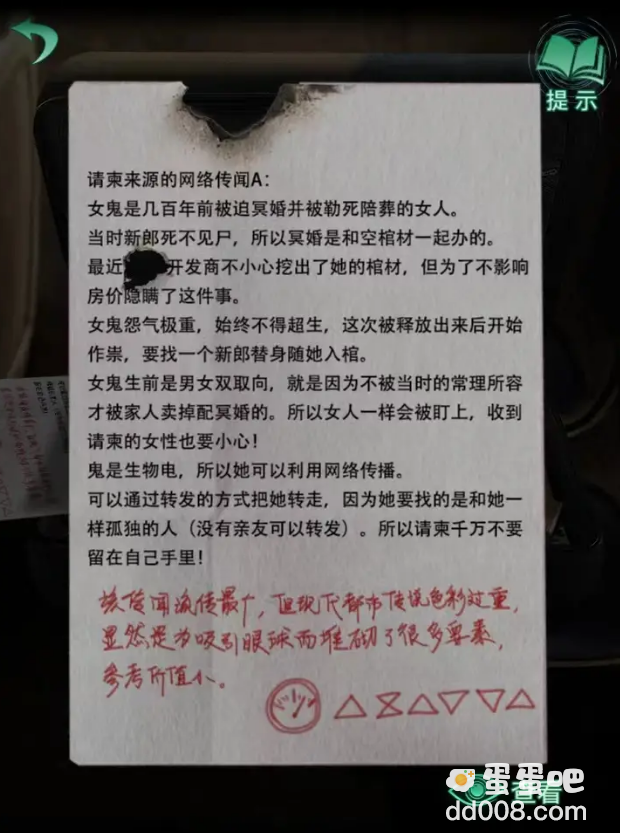 提示
请柬来源的网络传闻A：
女鬼是几百年前被迫冥婚并被勒死陪葬的女人。
当时新郎死不见尸，所以冥婚是和空棺材一起办的。
最近 开发商不小心挖出了她的棺材，但为了不影响
房价隐瞒了这件事。
女鬼怨气极重，始终不得超生，这次被释放出来后开始
作祟，要找一个新郎替身随她入棺。
女鬼生前是男女双取向，就是因为不被当时的常理所容
才被家人卖掉配冥婚的。所以女人一样会被盯上，收到
请柬的女性也要小心！
鬼是生物电，所以她可以利用网络传播。
可以通过转发的方式把她转走，因为她要找的是和她一
样孤独的人（没有亲友可以转发）。所以请柬千万不要
留在自己手里！
该传闻流传最广，但现代都市传说色彩过重，
显然是为吸引眼球而堆砌了很多要素，
参考价值小。
查看
蛋蛋吧
dd008.com